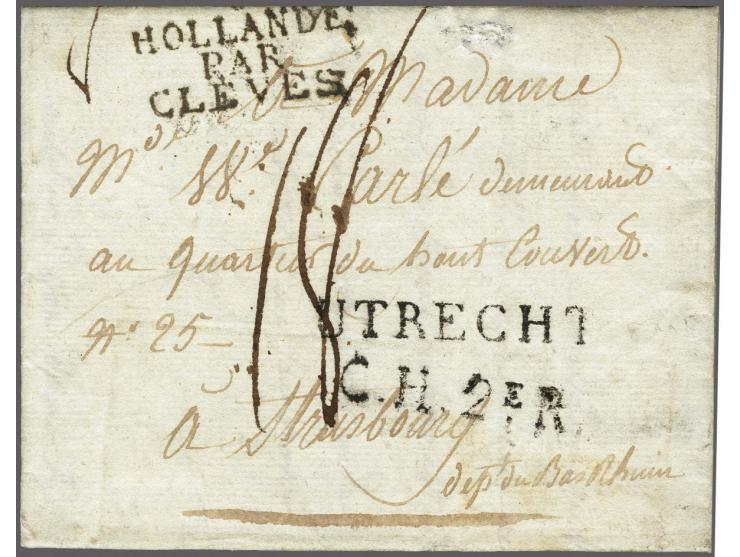 HOLLANDE
PAR
CLEVES
A Madame
Md. We. Carlé demeurant
au quartier du haut Couvert.
No. 25
UTRECHT
C.H. 2E R
à Strasbourg
dept du Bas Rhin